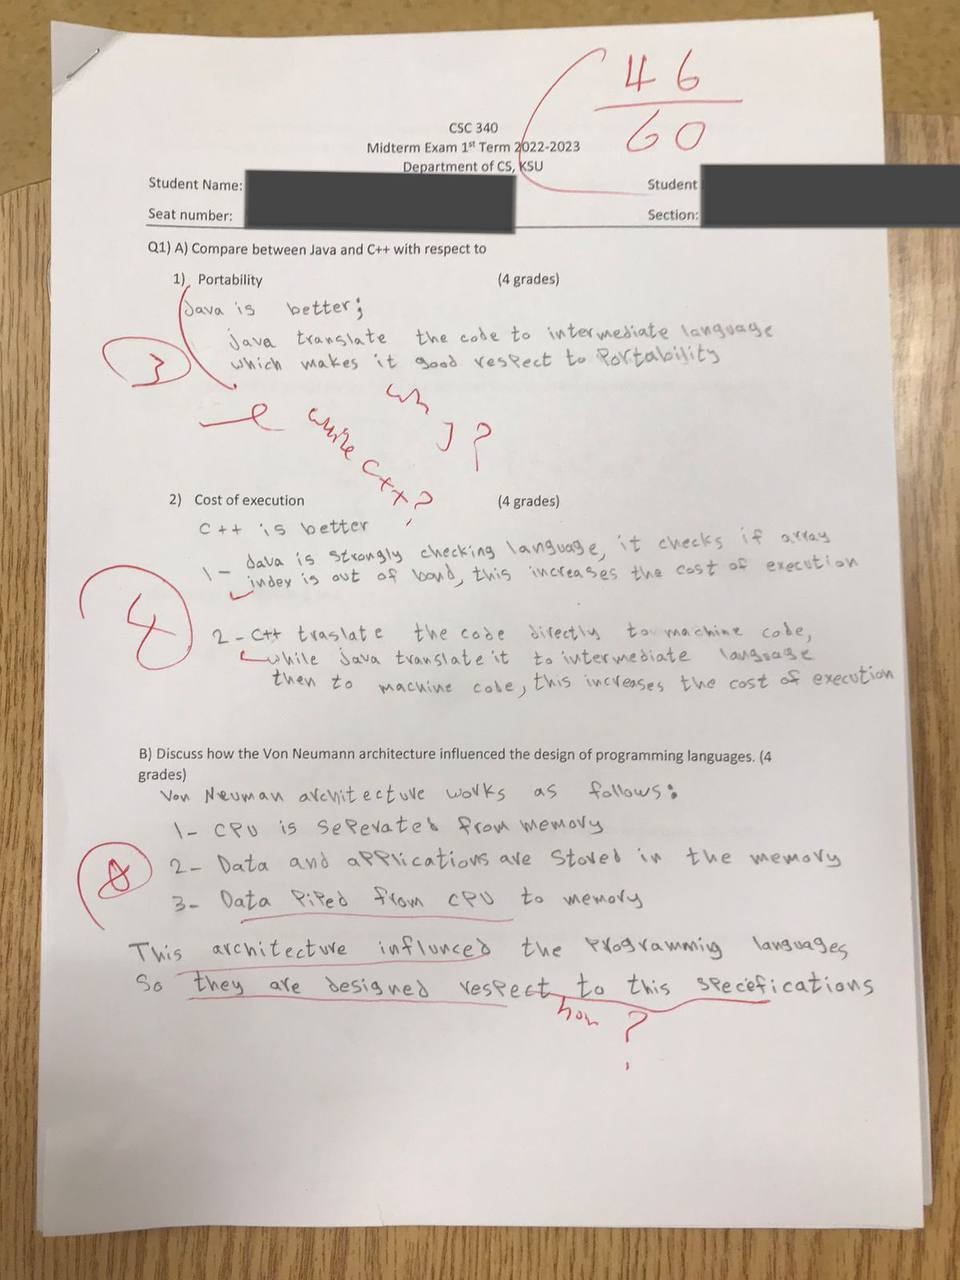 46
60
CSC 340
Midterm Exam 1st Term 2022-2023
Department of CS, KSU
Student Name:
Student
Seat number:
Section:
Q1) A) Compare between Java and C++ with respect to
1) Portability (4 grades)
Java is better;
java translate the code to intermediate language
which makes it good respect to Portability
3
why?
while C++?
2) Cost of execution (4 grades)
C++ is better
1- Java is strongly checking language, it checks if array
index is out of bond, this increases the cost of execution
4
2- C++ traslate the code directly to machine code,
while java translate it to intermediate language
then to machine code, this increases the cost of execution
B) Discuss how the Von Neumann architecture influenced the design of programming languages. (4
grades)
Von Neuman architecture works as follows:
1- CPU is seperated from memory
2- Data and applications are stored in the memory
3- Data Piped from CPU to memory
This architecture influnced the programmig languages
So they are designed respect to this specefications
how ?